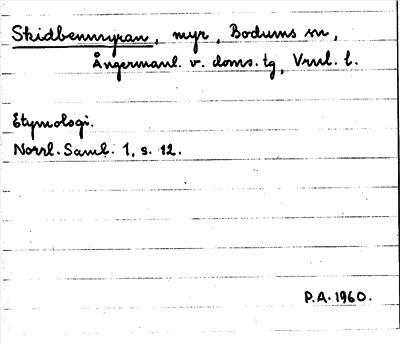 Skidbenmyran, myr, Bodums sn,
Ångermanl. v. doms. tg, Vnrl. l.
Etymologi.
Norrl. Saml. 1, s. 12.
P.A. 1960.